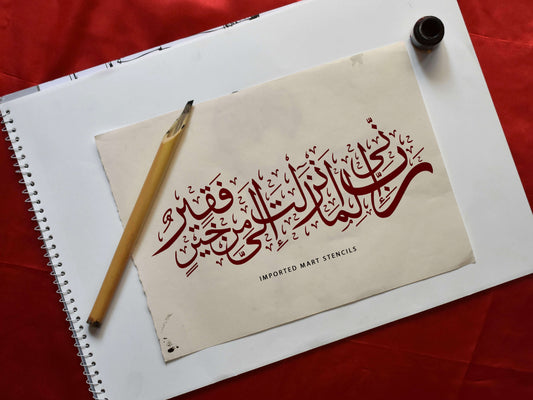 رَبِّ إِنِّي لِمَا أَنزَلْتَ إِلَيَّ مِنْ خَيْرٍ فَقِيرٌ
IMPORTED MART STENCILS